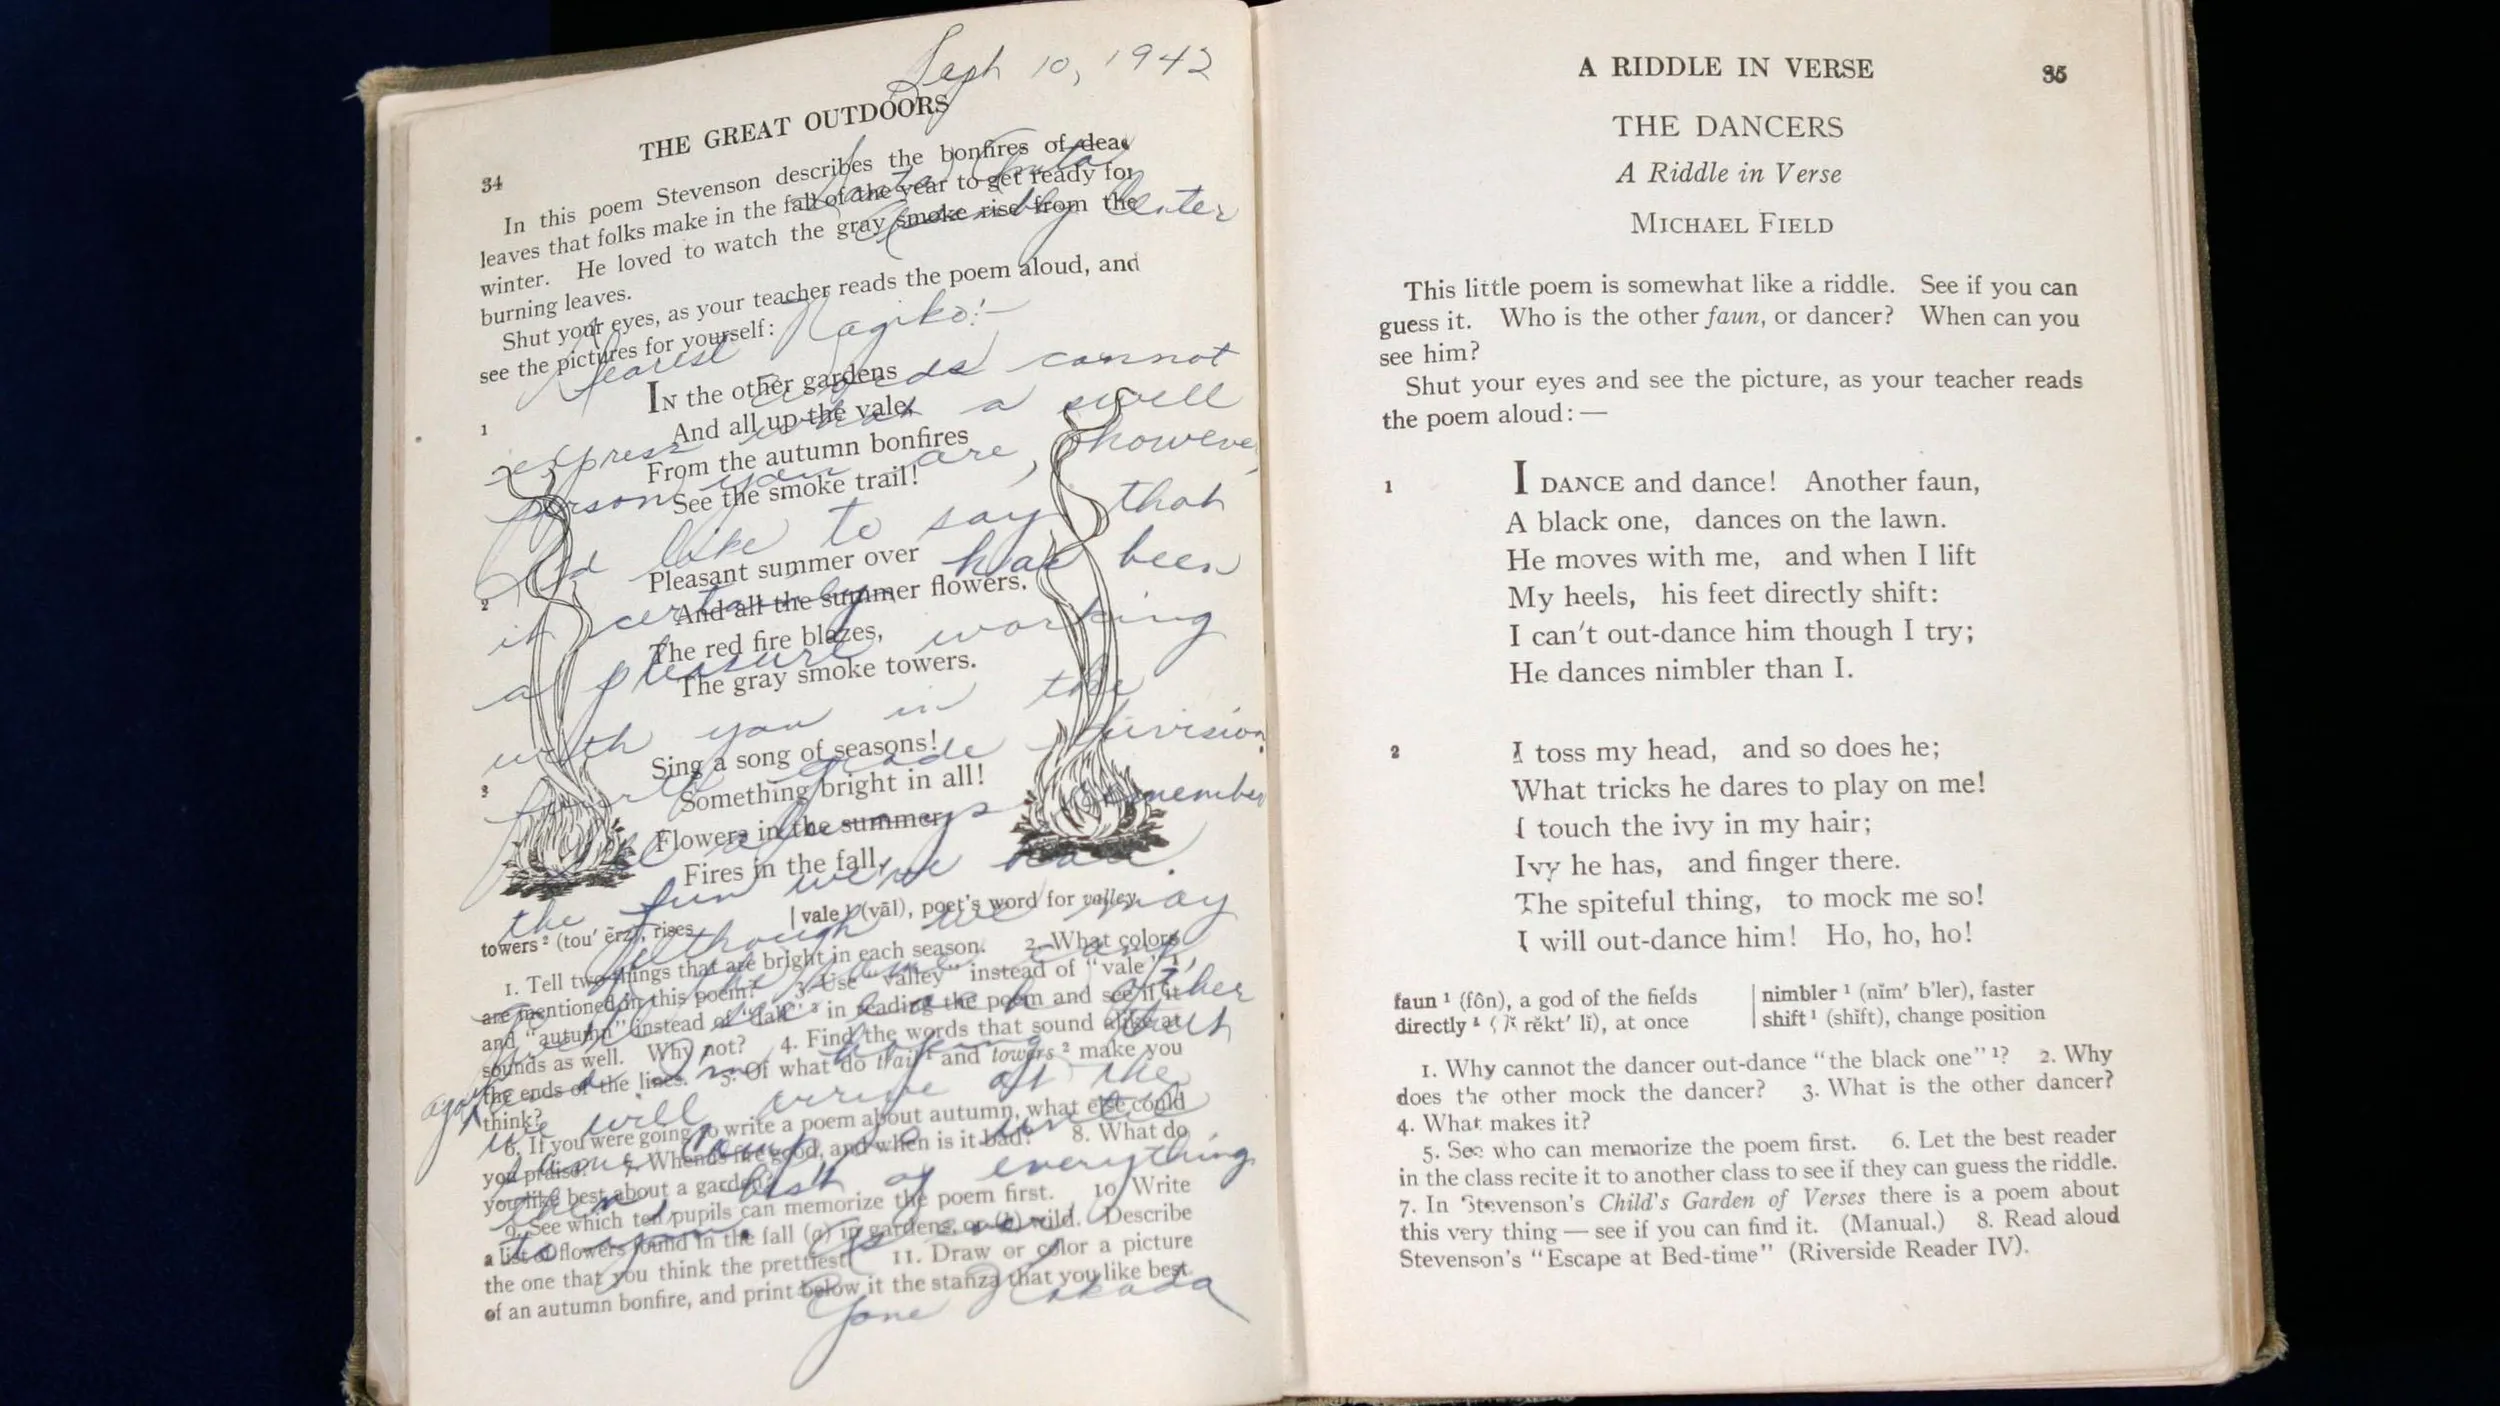 Sept 10, 1942
THE GREAT OUTDOORS
34
Santa Anita
Assembly Center
In this poem Stevenson describes the bonfires of dead
leaves that folks make in the fall of the year to get ready for
winter. He loved to watch the gray smoke rise from the
burning leaves.
Shut your eyes, as your teacher reads the poem aloud, and
see the pictures for yourself:
1
IN the other gardens
And all up the vale,
From the autumn bonfires
See the smoke trail!
2
Pleasant summer over
And all the summer flowers,
The red fire blazes,
The gray smoke towers.
3
Sing a song of seasons!
Something bright in all!
Flowers in the summer,
Fires in the fall.
towers ² (tou′ ẽrz), rises | vale ¹ (vāl), poet's word for valley
1. Tell two things that are bright in each season. 2. What colors
are mentioned in this poem? 3. Use "valley" instead of "vale" ¹,
and "autumn" instead of "fall" ³ in reading the poem and see if it
sounds as well. Why not? 4. Find the words that sound alike at
the ends of the lines. 5. Of what do trail ¹ and towers ² make you
think?
6. If you were going to write a poem about autumn, what else could
you praise? 7. When is fire good, and when is it bad? 8. What do
you like best about a garden?
9. See which ten pupils can memorize the poem first. 10. Write
a list of flowers found in the fall (a) in gardens, or (b) wild. Describe
the one that you think the prettiest. 11. Draw or color a picture
of an autumn bonfire, and print below it the stanza that you like best.
Dearest Nagiko:-
Words cannot
express what a swell
person you are, however,
I'd like to say that
it certainly has been
a pleasure working
with you in the
fourth grade division.
I'll always remember
the fun we've had.
Although we may
see each other
again I'm hoping that
we will arrive at the
same camp. So until
then, best of everything
to you.
Jane Okada
A RIDDLE IN VERSE
35
THE DANCERS
A Riddle in Verse
MICHAEL FIELD
This little poem is somewhat like a riddle. See if you can
guess it. Who is the other faun, or dancer? When can you
see him?
Shut your eyes and see the picture, as your teacher reads
the poem aloud: —
1
I DANCE and dance! Another faun,
A black one, dances on the lawn.
He moves with me, and when I lift
My heels, his feet directly shift:
I can't out-dance him though I try;
He dances nimbler than I.
2
I toss my head, and so does he;
What tricks he dares to play on me!
I touch the ivy in my hair;
Ivy he has, and finger there.
The spiteful thing, to mock me so!
I will out-dance him! Ho, ho, ho!
faun ¹ (fôn), a god of the fields | nimbler ¹ (nĭm′ b'ler), faster
directly ¹ (dĭ rĕkt′ lĭ), at once | shift ¹ (shĭft), change position
1. Why cannot the dancer out-dance "the black one" ¹? 2. Why
does the other mock the dancer? 3. What is the other dancer?
4. What makes it?
5. See who can memorize the poem first. 6. Let the best reader
in the class recite it to another class to see if they can guess the riddle.
7. In Stevenson's Child's Garden of Verses there is a poem about
this very thing — see if you can find it. (Manual.) 8. Read aloud
Stevenson's "Escape at Bed-time" (Riverside Reader IV).